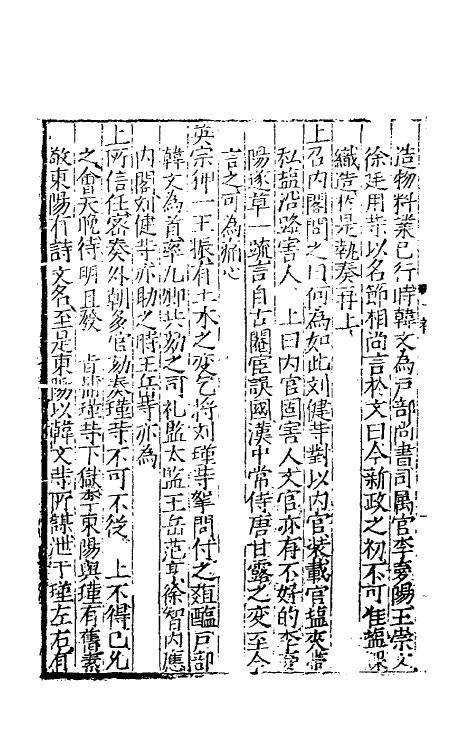 造物料業已行時韓文為戸部尚書司属官李夢陽王崇文
徐廷用䓁以名節相尚言於文曰今新政之初不可准塩課
織造於是執奏再上
上召内閣問之曰何為如此刘健䓁對以内官装載官塩夾帶
私塩沿路害人　上曰内官固害人文官亦有不好的李夢
陽遂草一疏言自古閹宦誤國漢中常侍唐甘露之变至今
言之可為寒心
英宗狎一王振有土木之变乞将刘瑾䓁拏問付之葅醢戸部
韓文為首率九卿共劾之司礼監太監王岳范亨徐智内應
内閣刘健䓁亦助之時王岳䓁亦為
上所信任密奏外朝多官劾奏瑾䓁不可不從　上不得已允
之會天晚待明旦發　㫖捕瑾䓁下獄李東陽與瑾有舊素
敬東陽有詩文名至是東陽以韓文䓁所謀泄于瑾左右有